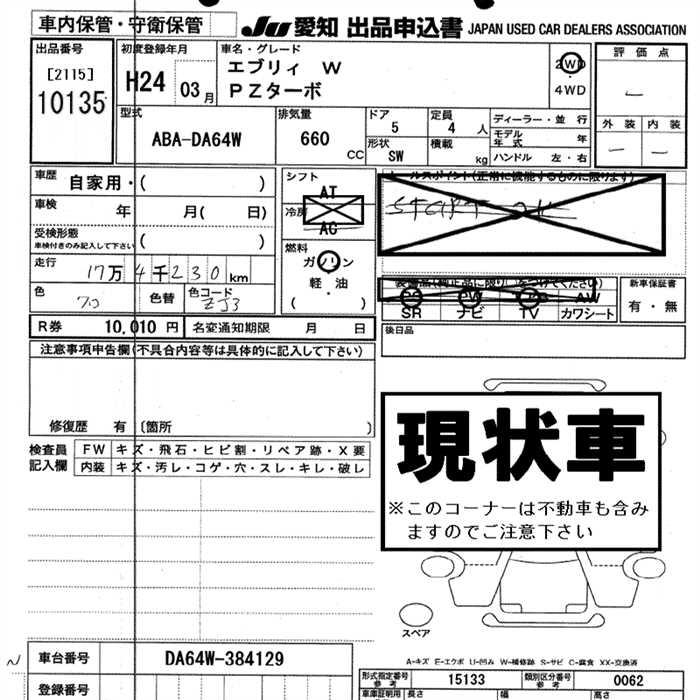 車内保管・守衛保管
JU 愛知 出品申込書 JAPAN USED CAR DEALERS ASSOCIATION
出品番号
[2115]
10135
初度登録年月
H24 03月
車名・グレード
エブリィ W
PZターボ
2WD
・
4WD
評価点
—
外装 内装
— —
型式
ABA-DA64W
排気量
660 CC
ドア
5
定員
4 人
形状
SW
積載
kg
ディーラー・並行
モデル年式 年
ハンドル 左・右
車歴 自家用・( )
車検 年 月( 日)
受検形態
車検付きのみ記入して下さい ( )
走行
17万4千230km
色 色替 色コード
ZJ3
シフト
AT
冷房
AC
燃料
ガソリン
軽・油
( )
セールスポイント(正常に機能するものに限ります)
装備品(純正品に限り)をつけてください
AW
SR ナビ TV カワシート
新車保証書
有・無
後日品
R券 10,010 円 名変通知期限 月 日
注意事項申告欄(不具合内容等は具体的に記入して下さい)
修復歴 有 〔箇所 〕
検査員記入欄
FW キズ・飛石・ヒビ割・リペア跡・X要
内装 キズ・汚レ・コゲ・穴・スレ・キレ・破レ
現状車
※このコーナーは不動車も含み
ますのでご注意下さい
スペア
A-キズ E-エクボ U-凹み W-補修跡 S-サビ C-腐食 XX-交換済
車台番号 DA64W-384129
登録番号
型式指定番号
参考
15133
類別区分番号
参考
0062
車庫証明用 長さ 幅 高さ